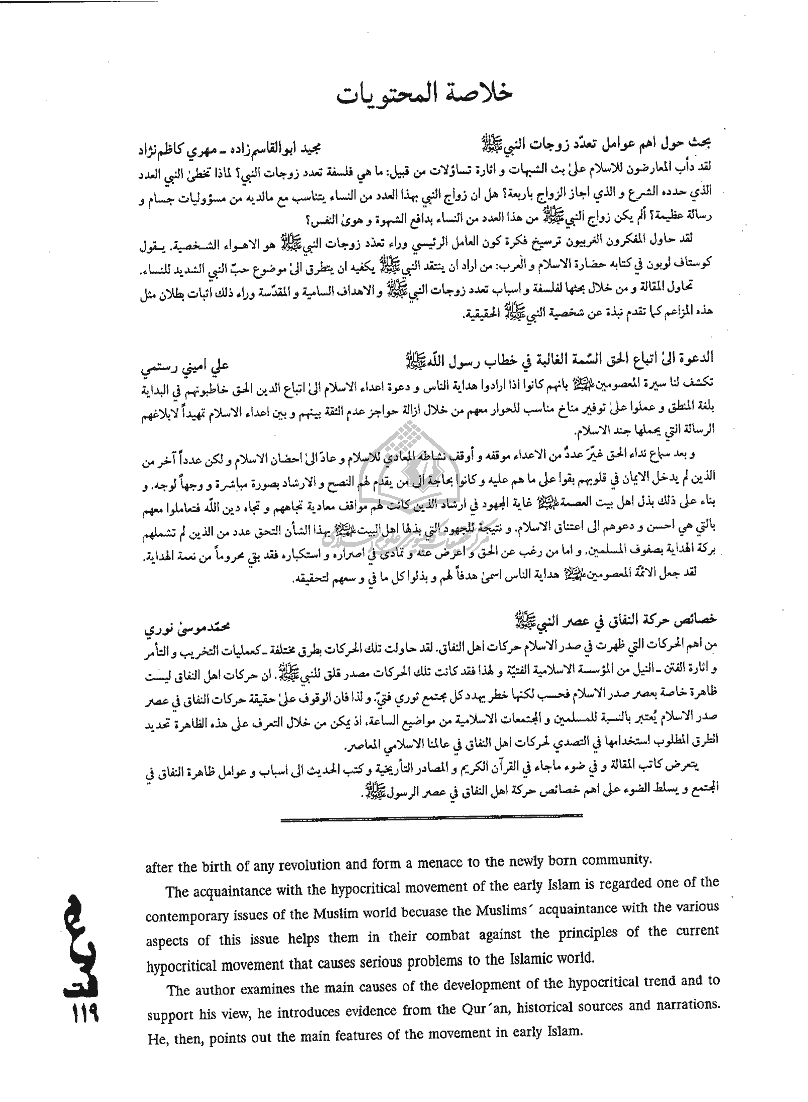 خلاصة المحتويات
بحث حول اهم عوامل تعدّد زوجات النبي ﷺ
مجيد ابوالقاسم‌زاده ـ مهري كاظم‌نژاد
لقد دأب المعارضون للاسلام علىٰ بث الشبهات و اثارة تساؤلات من قبيل: ما هي فلسفة تعدد زوجات النبي؟ لماذا تخطىٰ النبي العدد
الذي حدده الشرع و الذي اجاز الزواج باربعة؟ هل ان زواج النبي بهذا العدد من النساء يتناسب مع مالديه من مسؤوليات جسام و
رسالة عظيمة؟ ألم يكن زواج النبي ﷺ من هذا العدد من النساء بدافع الشهوة و هوىٰ النفس؟
لقد حاول المفكرون الغربيون ترسيخ فكرة كون العامل الرئيسي وراء تعدّد زوجات النبي ﷺ هو الاهواء الشخصية. يقول
كوستاف لوبون في كتابه حضارة الاسلام و العرب: من اراد ان ينتقد النبي ﷺ يكفيه ان يتطرق الىٰ موضوع حبّ النبي الشديد للنساء.
تحاول المقالة و من خلال بحثها لفلسفة و اسباب تعدد زوجات النبي ﷺ و الاهداف السامية و المقدّسة وراء ذلك أثبات بطلان مثل
هذه المزاعم كما تقدم نبذة عن شخصية النبي ﷺ الحقيقية.
الدعوة الىٰ اتباع الحق السّمة الغالبة في خطاب رسول اللّه ﷺ
علي اميني رستمي
تكشف لنا سيرة المعصومين بانهم كانوا اذا ارادوا هداية الناس و دعوة اعداء الاسلام الىٰ اتباع الدين الحق خاطبونهم في البداية
بلغة المنطق و عملوا علىٰ توفير مناخ مناسب للحوار معهم من خلال ازالة حواجز عدم الثقة بينهم و بين اعداء الاسلام تمهيداً لابلاغهم
الرسالة التي يحملها جند الاسلام.
و بعد سماع نداء الحق غيّر عددٌ من الاعداء موقفه و أوقف نشاطه المعادي للاسلام و عادَ الىٰ احضان الاسلام و لكن عدداً آخر من
الذين لم يدخل الايمان في قلوبهم بقوا على ما هم عليه و كانوا بحاجة الى من يقدم لهم النصح و الارشاد بصورة مباشرة و وجهاً لوجه. و
بناء على ذلك بذل اهل بيت العصمة غاية المجهود في ارشاد الذين كانت لهم مواقف معادية تجاههم و تجاه دين اللّه فتعاملوا معهم
بالتي هي احسن و دعوهم الى اعتناق الاسلام. و نتيجة للجهود التي بذلها اهل البيت بهذا الشأن التحق عدد من الذين لم تشملهم
بركة الهداية بصفوف المسلمين. و اما من رغب عن الحق و اعرض عنه و تمادىٰ في اصراره و استكباره فقد بقي محروماً من نعمة الهداية.
لقد جعل الائمّة المعصومين هداية الناس اسمىٰ هدفاً لهم و بذلوا كل ما في و سعهم لتحقيقه.
خصائص حركة النفاق في عصر النبي ﷺ
محمّدموسىٰ نوري
من اهم الحركات التي ظهرت في صدر الاسلام حركات اهل النفاق. لقد حاولت تلك الحركات بطرق مختلفة ـ كعمليات التخريب و التأمر
و اثارة الفتن ـ النيل من المؤسسة الاسلامية الفتيّة و لهذا فقد كانت تلك الحركات مصدر قلق للنبي ﷺ. ان حركات اهل النفاق ليست
ظاهرة خاصة بعصر صدر الاسلام فحسب لكنها خطر يهدد كل مجتمع ثوري فتيّ. و لذا فان الوقوف علىٰ حقيقة حركات النفاق في عصر
صدر الاسلام يُعتبر بالنسبة للمسلمين و المجتمعات الاسلامية من مواضيع الساعة، اذ يمكن من خلال التعرف على هذه الظاهرة تحديد
الطرق المطلوب استخدامها في التصدي لحركات اهل النفاق في عالمنا الاسلامي المعاصر.
يتعرض كاتب المقالة و في ضوء ماجاء في القرآن الكريم و المصادر التأريخية و كتب الحديث الى اسباب و عوامل ظاهرة النفاق في
المجتمع و يسلط الضوء على اهم خصائص حركة اهل النفاق في عصر الرسول ﷺ.
after the birth of any revolution and form a menace to the newly born community.
The acquaintance with the hypocritical movement of the early Islam is regarded one of the
contemporary issues of the Muslim world becuase the Muslims´ acquaintance with the various
aspects of this issue helps them in their combat against the principles of the current
hypocritical movement that causes serious problems to the Islamic world.
The author examines the main causes of the development of the hypocritical trend and to
support his view, he introduces evidence from the Qur´an, historical sources and narrations.
He, then, points out the main features of the movement in early Islam.
١١٩